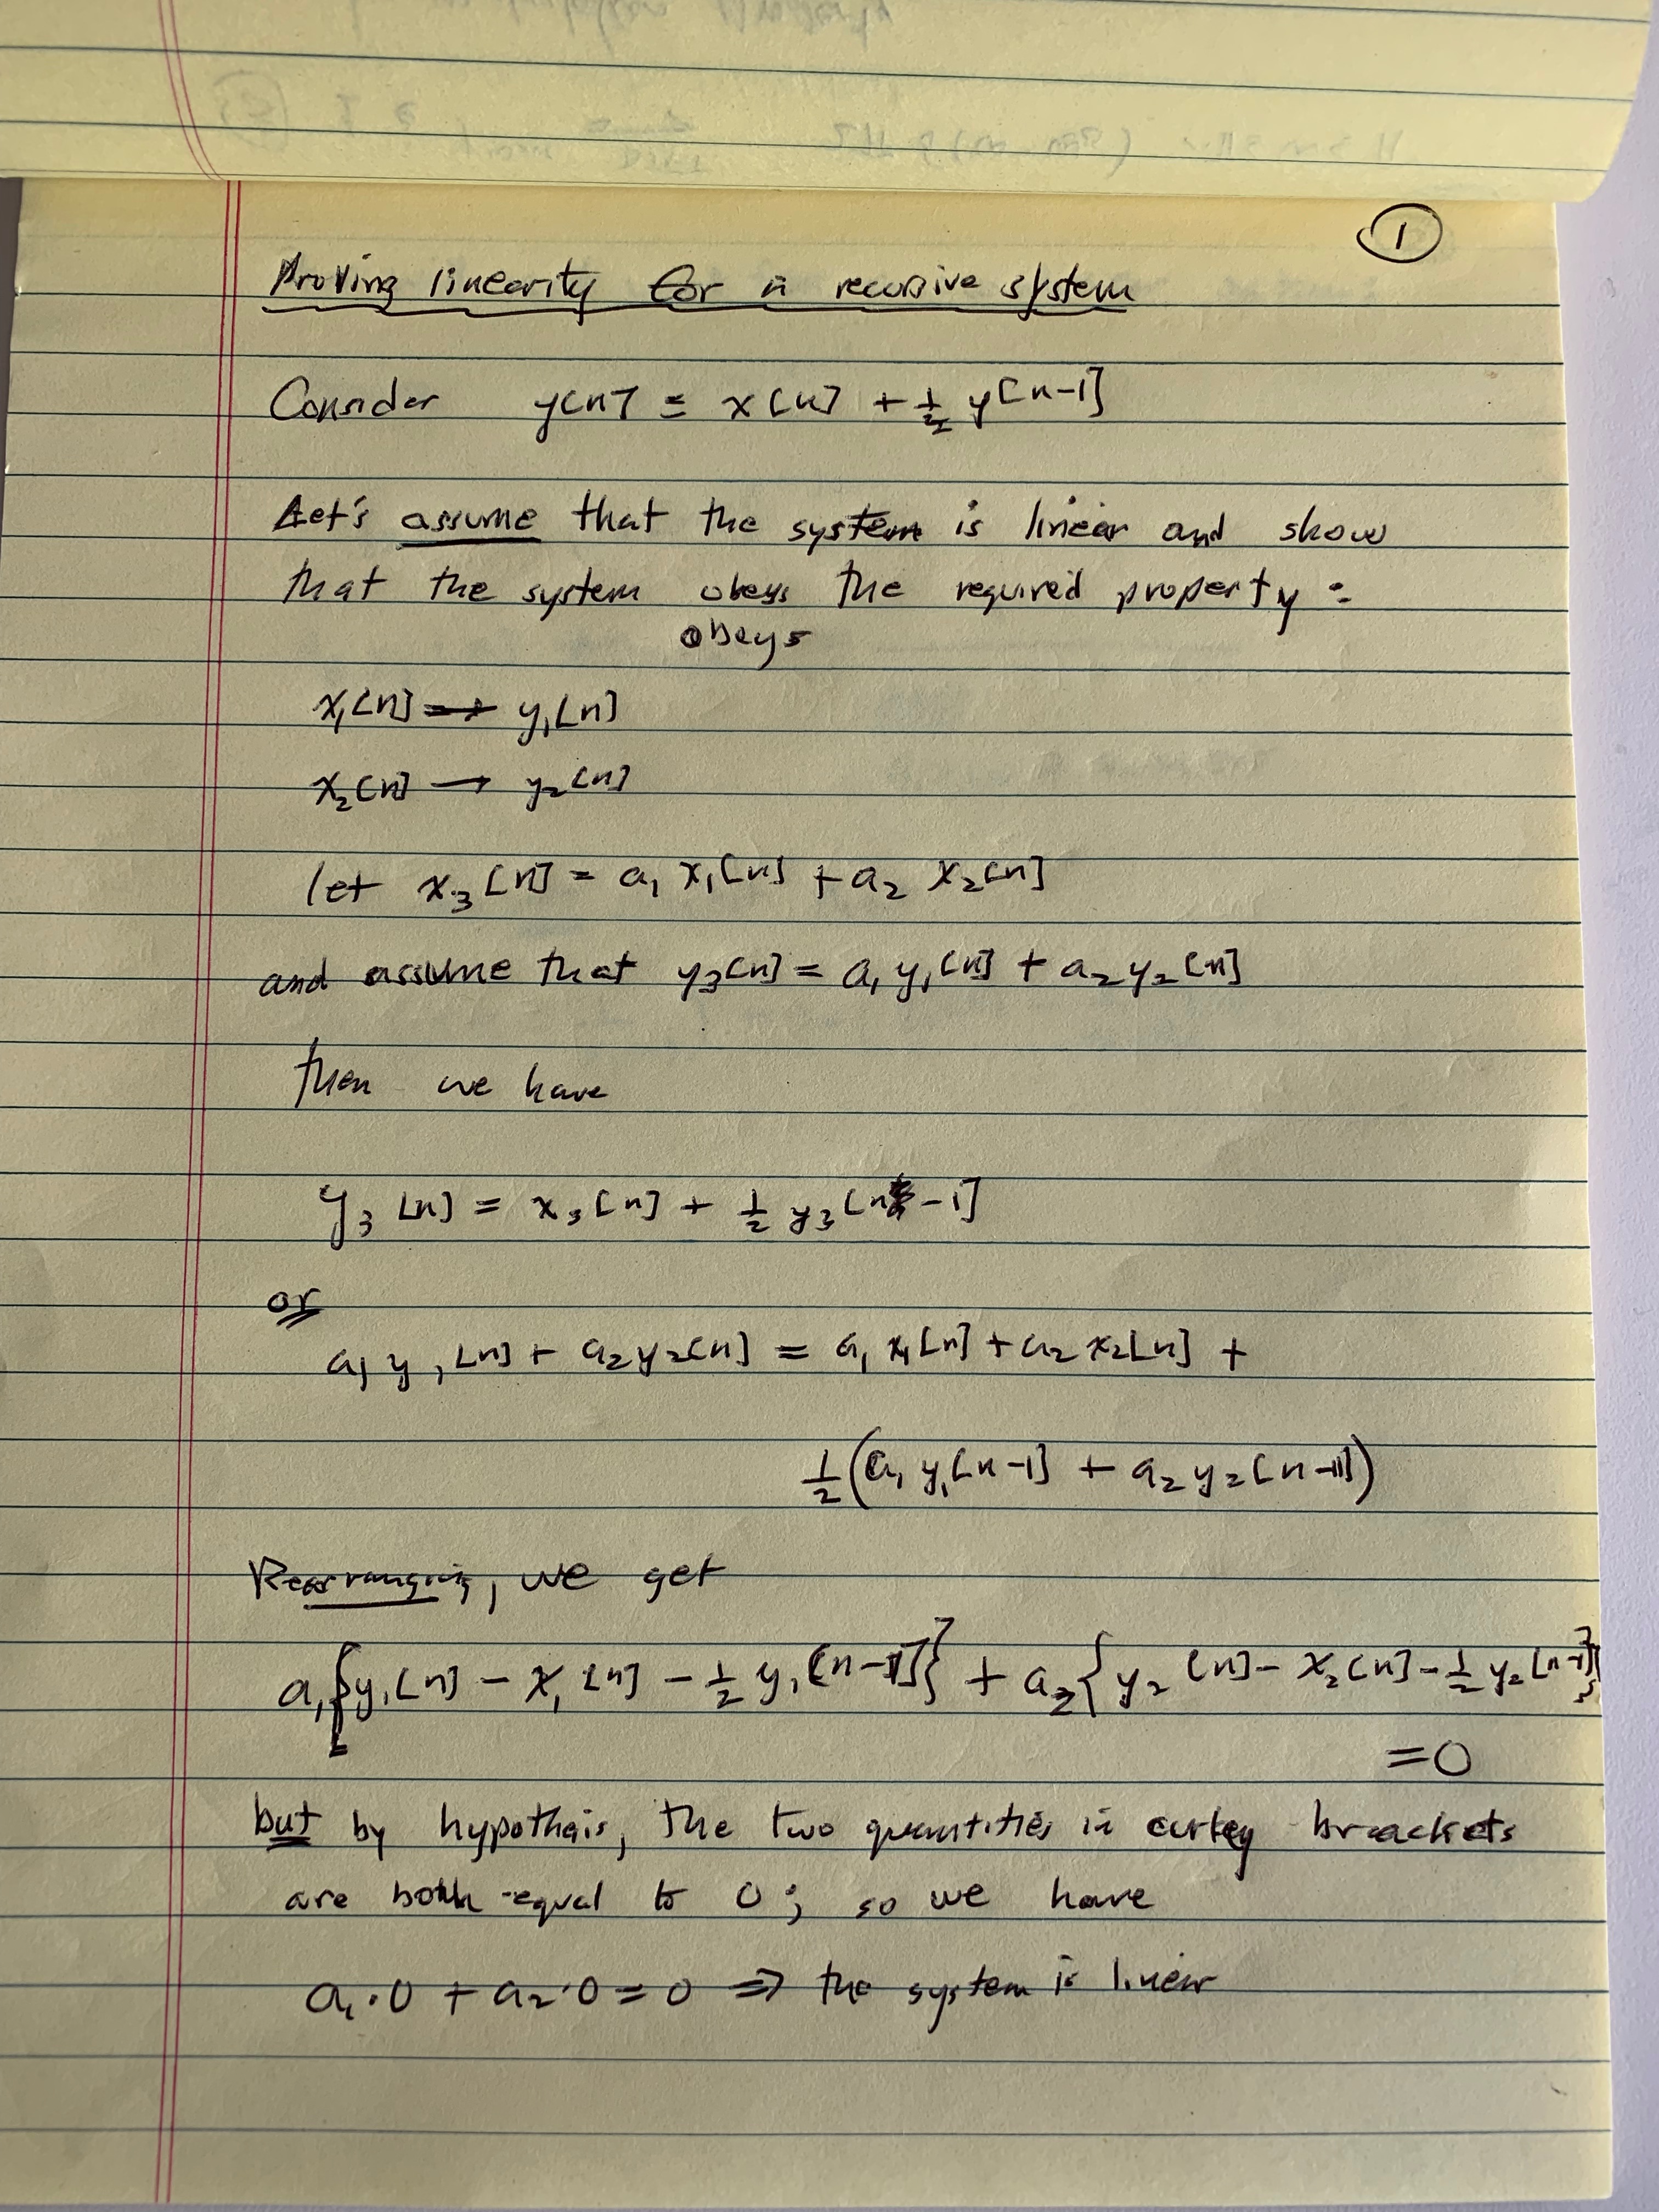 ①
Proving linearity for a recursive system
Consider y[n] = x[n] + ½ y[n-1]
Let's assume that the system is linear and show
that the system obeys the required property :
obeys
x₁[n] → y₁[n]
x₂[n] → y₂[n]
let x₃[n] = a₁ x₁[n] + a₂ x₂[n]
and assume that y₃[n] = a₁ y₁[n] + a₂ y₂[n]
then we have
y₃[n] = x₃[n] + ½ y₃[n-1]
or
a₁ y₁[n] + a₂ y₂[n] = a₁ x₁[n] + a₂ x₂[n] +
½(a₁ y₁[n-1] + a₂ y₂[n-1])
Rearranging, we get
a₁{y₁[n] - x₁[n] - ½ y₁[n-1]} + a₂{y₂[n] - x₂[n] - ½ y₂[n-1]}
=0
but by hypothesis, the two quantities in curley brackets
are both equal to 0; so we have
a₁·0 + a₂·0 = 0 ⇒ the system is linear